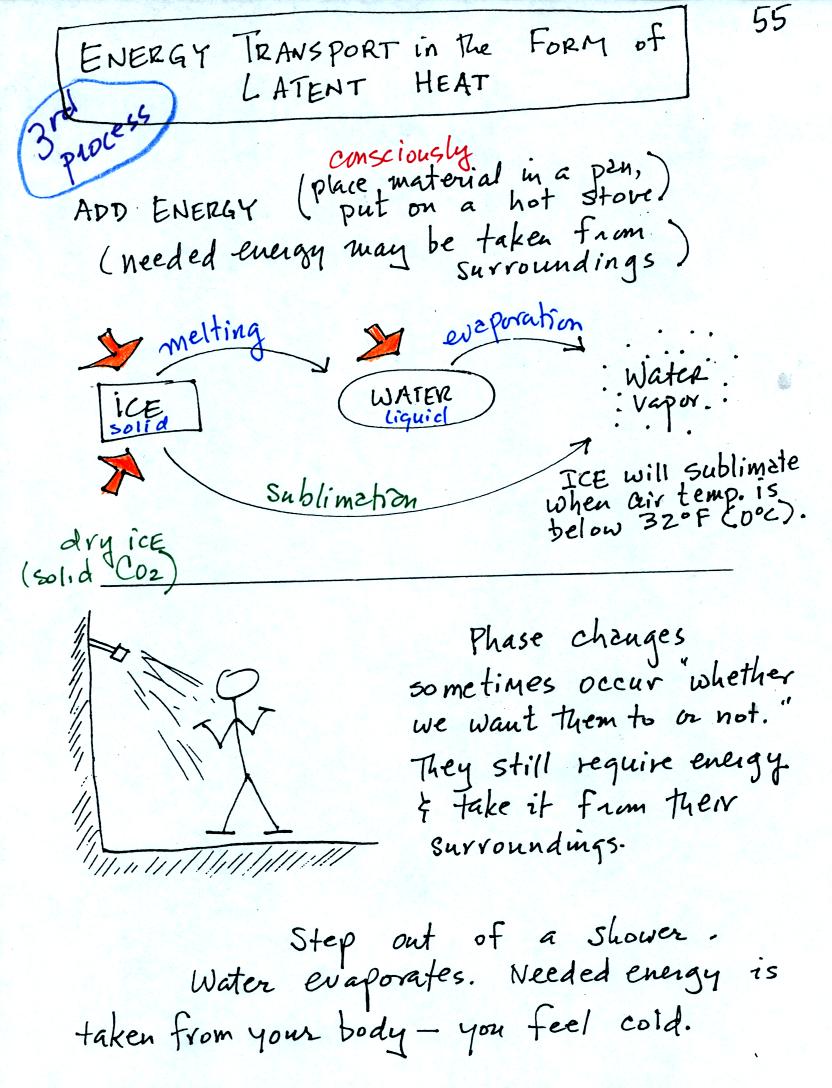 55
ENERGY TRANSPORT in the FORM of
LATENT HEAT
3rd
process
consciously
ADD ENERGY (place material in a pan,
put on a hot stove)
(needed energy may be taken from
surroundings)
melting
evaporation
ICE
solid
WATER
liquid
Water
vapor
sublimation
ICE will sublimate
when air temp. is
below 32°F (0°C).
dry ICE
(solid CO2)
Phase changes
sometimes occur "whether
we want them to or not."
They still require energy
& take it from their
surroundings.
Step out of a shower.
Water evaporates. Needed energy is
taken from your body – you feel cold.